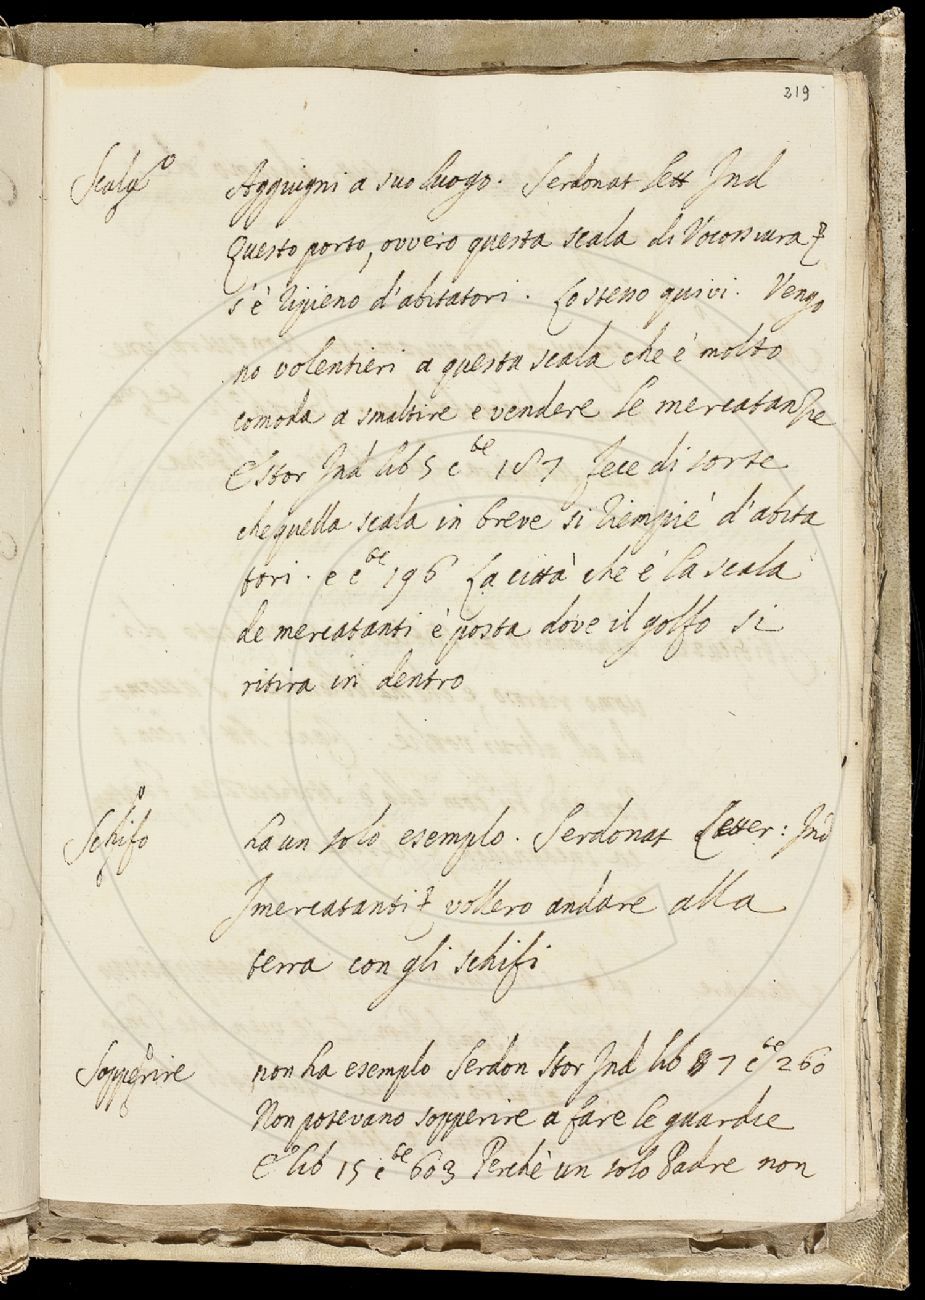 219
Scala Aggiugni a suo luogo. Serdonat lett Ind
Questo porto, ovvero questa scala di
s'è ripieno d'abitatori. Lo stesso quivi. Vengo
no volentieri a questa scala che è molto
comoda a smaltire e vendere le mercatanzie
E Stor Ind lib 5 c.te 187 fece di sorte
che quella scala in breve si riempiè d'abita
tori. e c.te 196 La città che è la scala
de mercatanti è posta dove il golfo si
ritira in dentro
Schifo ha un solo esemplo. Serdonat Letter: Ind
I mercatanti vollero andare alla
terra con gli schifi
Sopperire non ha esemplo Serdon Stor Ind lib 7 c.te 260
Non potevano sopperire a fare le guardie
E lib 15 c.te 603 Perchè un solo Padre non